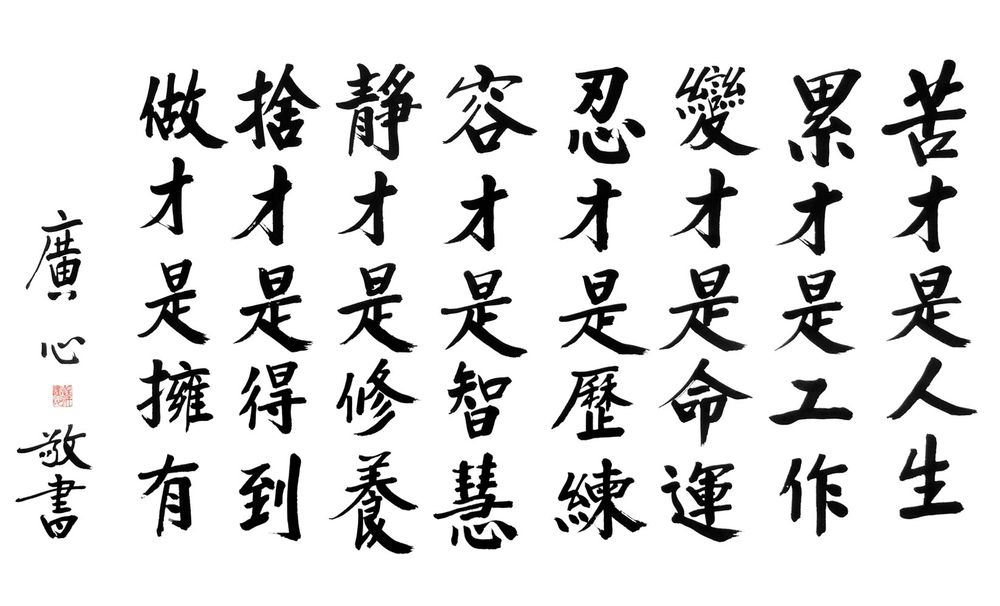 苦才是人生
累才是工作
變才是命運
忍才是歷練
容才是智慧
靜才是修養
捨才是得到
做才是擁有
廣心 敬書